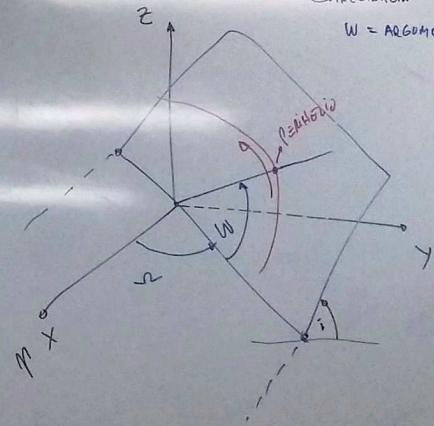 W = ARGUM
Z
PERIHELIO
W
Ω
Y
i
X